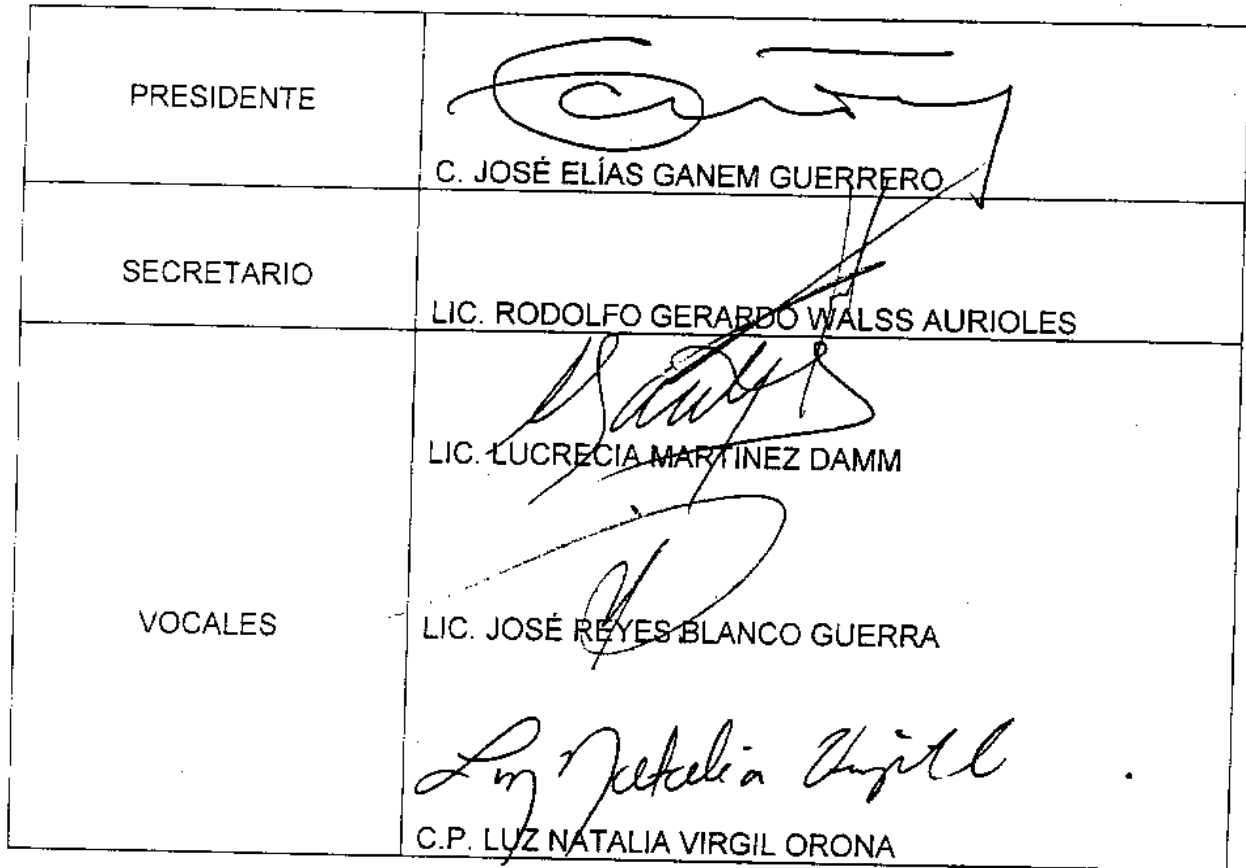 PRESIDENTE
C. JOSÉ ELÍAS GANEM GUERRERO
SECRETARIO
LIC. RODOLFO GERARDO WALSS AURIOLES
LIC. LUCRECIA MARTINEZ DAMM
VOCALES
LIC. JOSÉ REYES BLANCO GUERRA
Luz Natalia Virgil
C.P. LUZ NATALIA VIRGIL ORONA